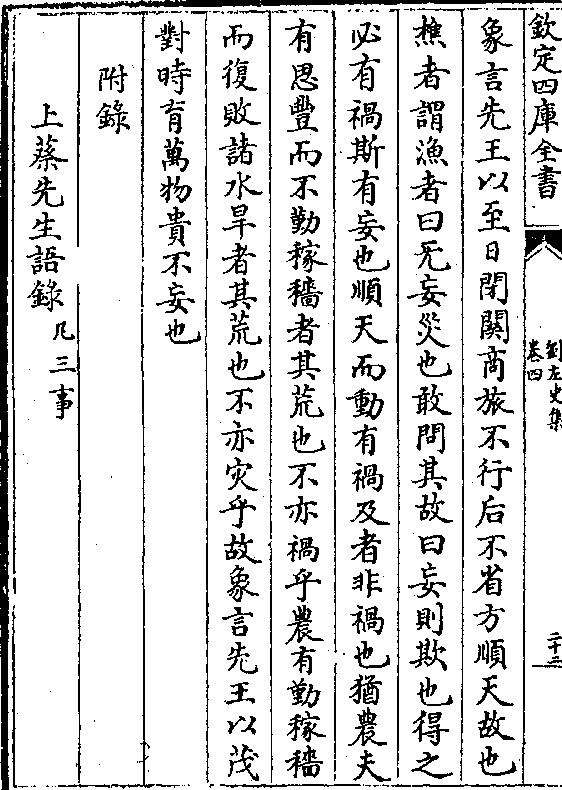 欽定四庫全書
劉左史集
卷四
二十三
象言先王以至日閉關商旅不行后不省方順天故也
樵者謂漁者曰无妄災也敢問其故曰妄則欺也得之
必有禍斯有妄也順天而動有禍及者非禍也猶農夫
有思豐而不勤稼穡者其荒也不亦禍乎農有勤稼穡
而復敗諸水旱者其荒也不亦灾乎故象言先王以茂
對時育萬物貴不妄也
附錄
上蔡先生語錄凡三事